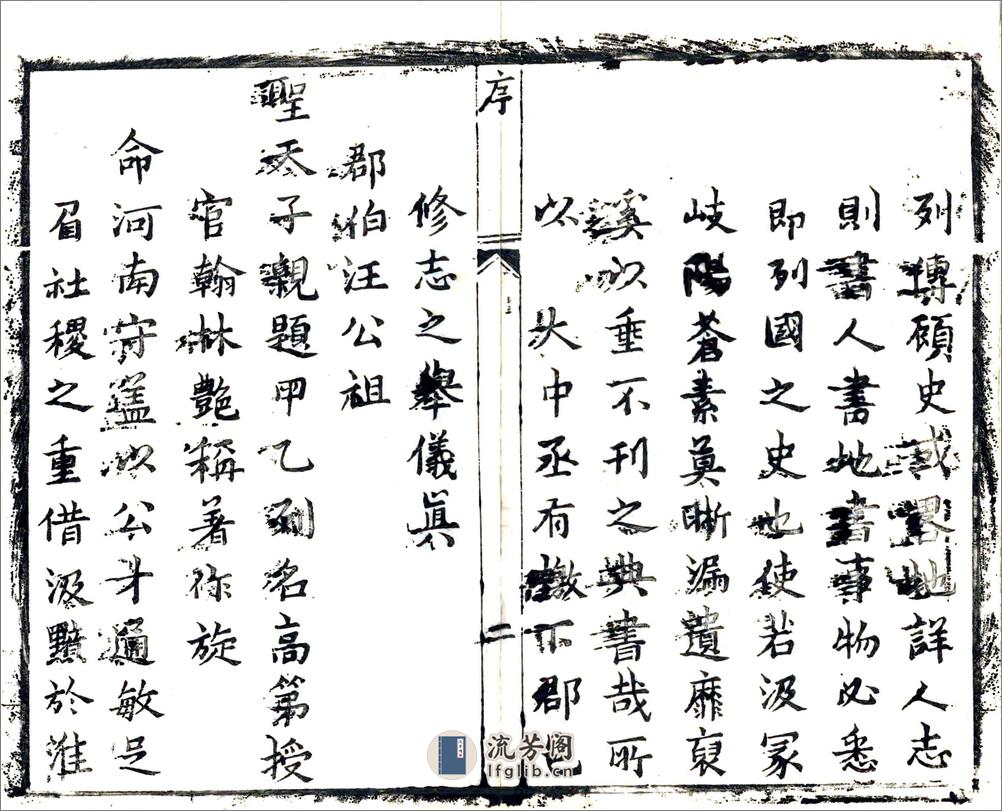 列傳顧史或畧地詳人志
則書人書地書事物必悉
即列國之史也使若汲冡
岐陽蒼素莫晰漏遺靡裒
奚以垂不刊之典書哉所
以 大中丞有檄下郡邑
修志之舉儀眞
郡伯汪公祖
聖天子親題甲乙列名高第授
官翰林艷稱著祢旋
命河南守盖以公才通敏足
眉社稷之重借汲黯於淮
序
二
流芳阁
lfglib.cn